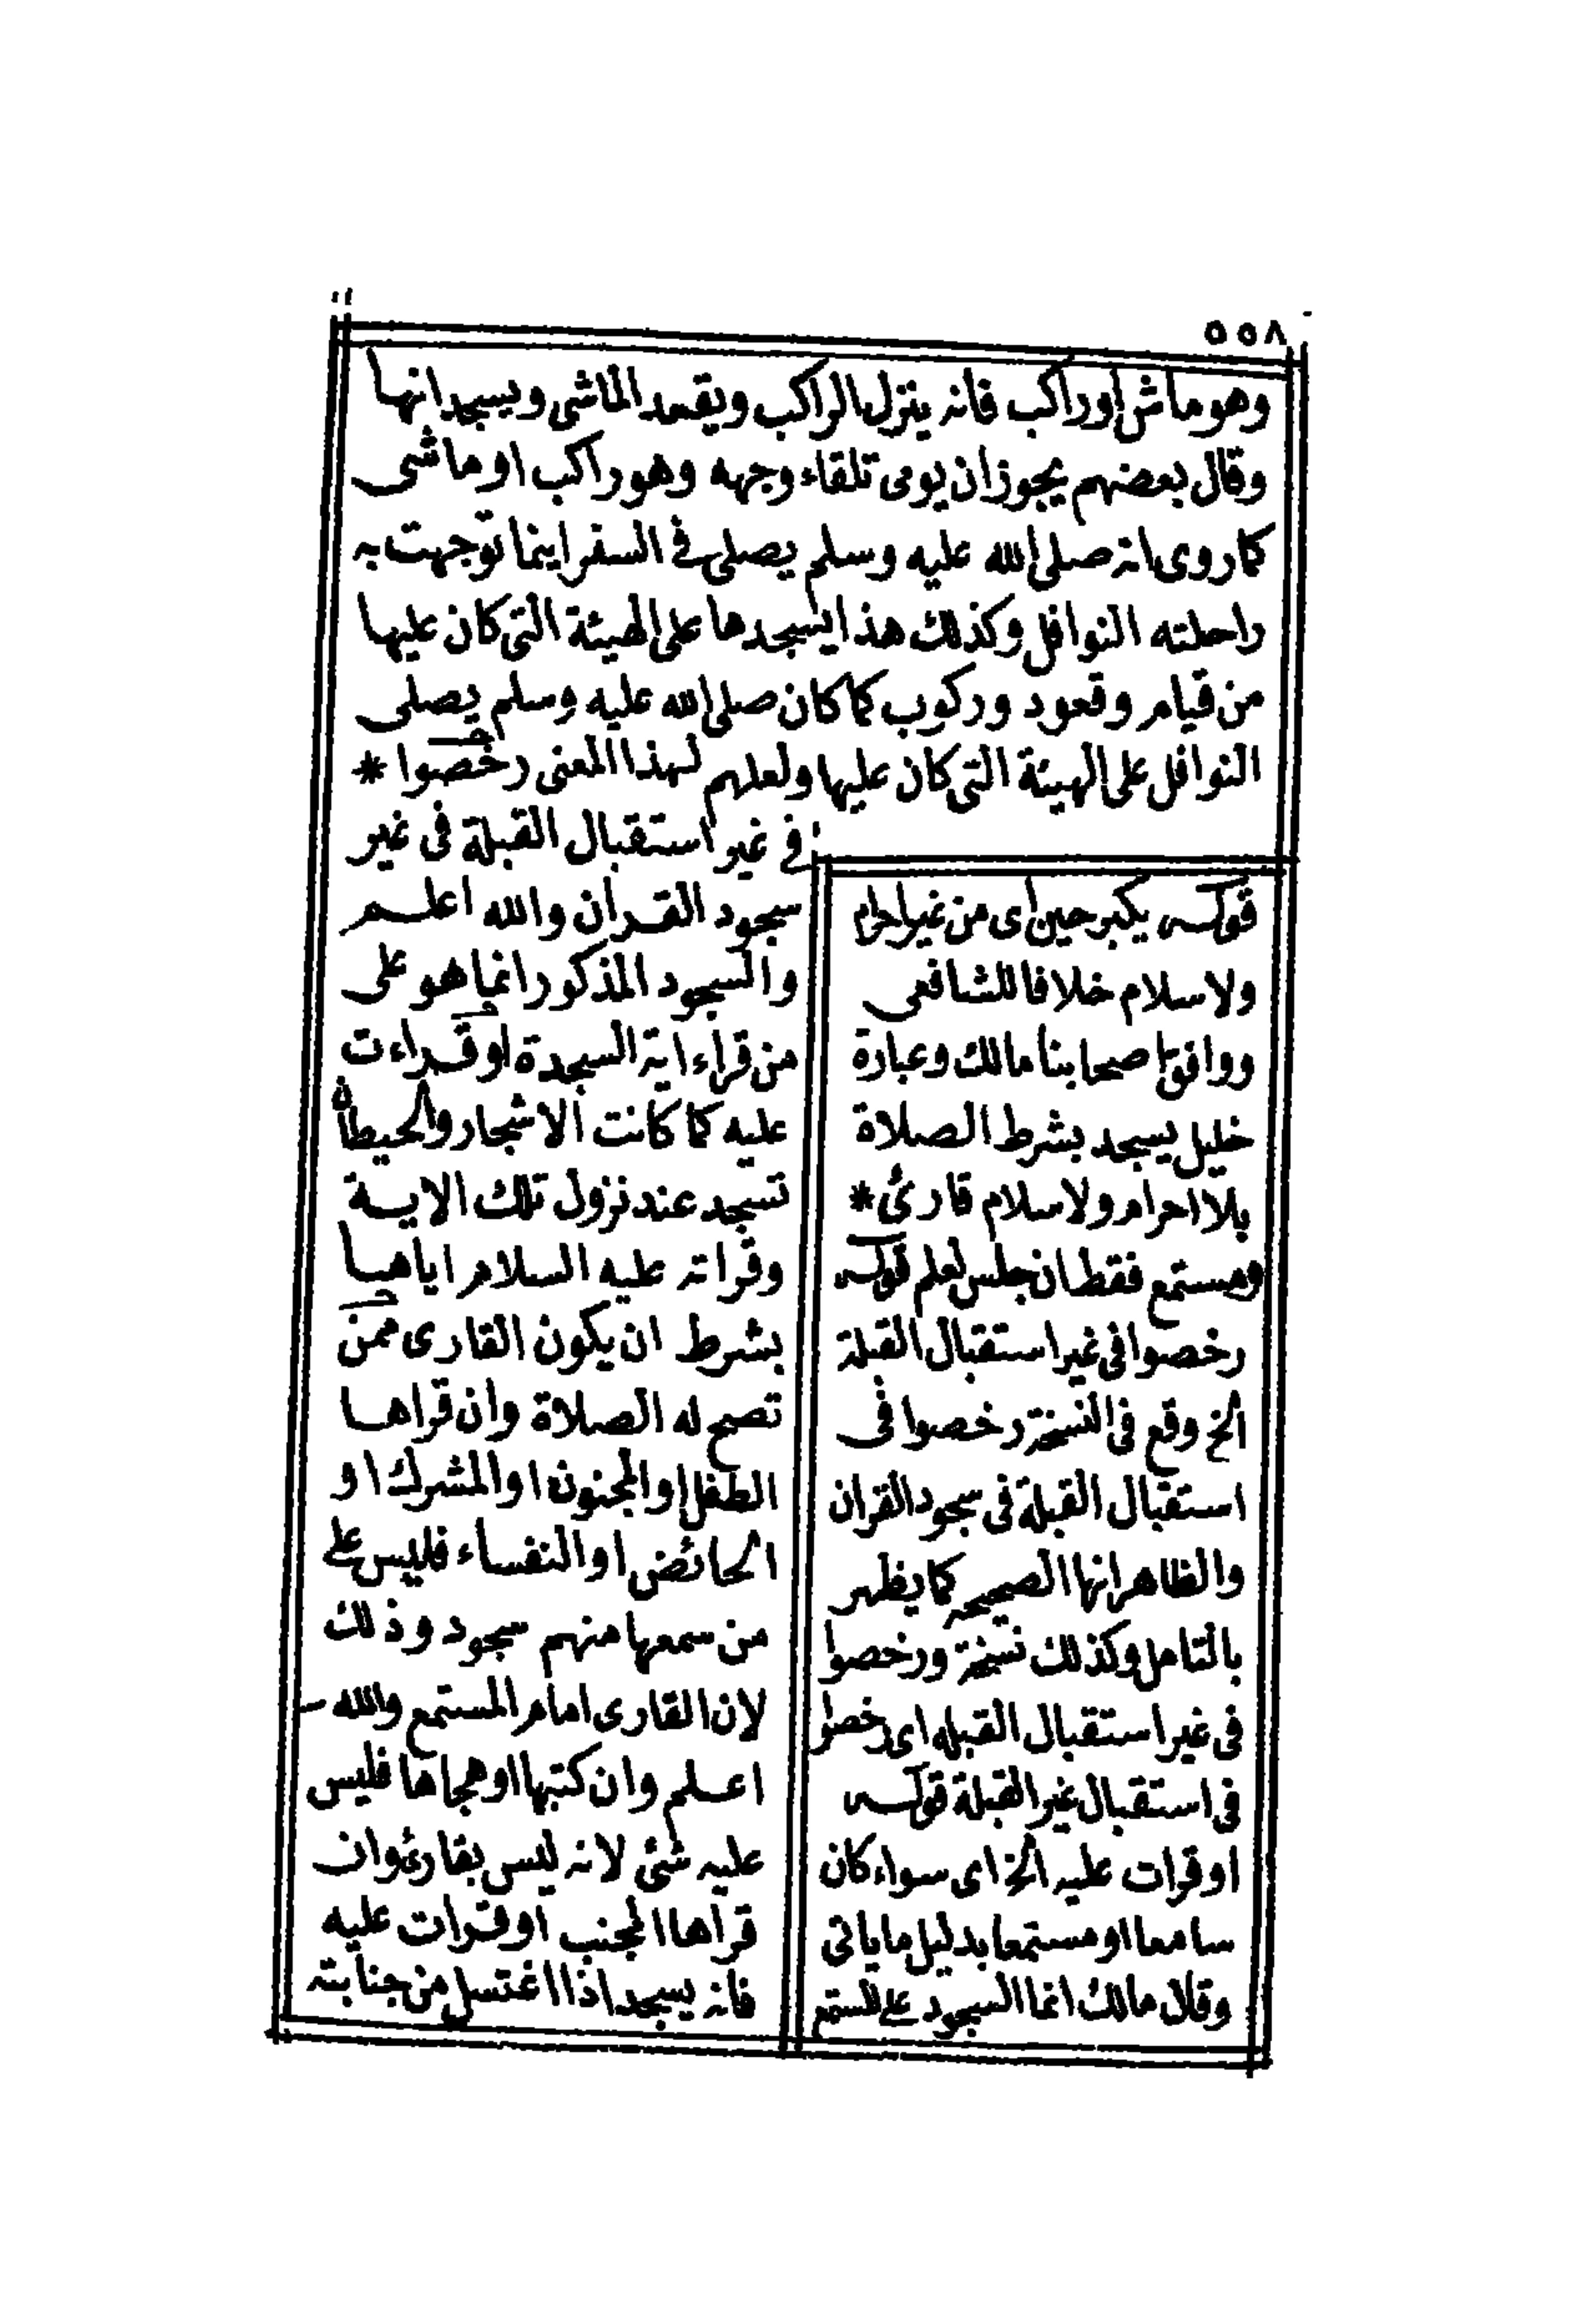 ٥٥٨
وهو ماش او راكب فانه ينزل الراكب ويقعد الماشى ويسجدانها
وقال بعضهم يجوز ان يومى تلقاء وجهه وهو راكب او ماشى
كما روى انه صلى الله عليه وسلم يصلى فى السفر اينما توجهت به
راحلته النوافل وكذلك هذا يسجدها على الهيئة التى كان عليها
من قيام وقعود وركوب كما كان صلى الله عليه وسلم يصلى
النوافل على الهيئة التى كان عليها ولعلهم لهذا المعنى رخصوا *
فى غير استقبال القبلة فى غير
سجود القران والله اعلم
والسجود المذكور انما هو على
من قراء اية السجدة او قراءت
عليه كما كانت الاشجار والحيطان
تسجد عند نزول تلك الاية
وقراته عليه السلام اياها
بشرط ان يكون القارى ممن
تصح له الصلاة وان قراها
الطفل او المجنون او المشرك او
الحائض او النفساء فليس على
من سمعها منهم سجود وذلك
لان القارى امام المستمع والله
اعلم وان كتبها او هجاها فليس
عليه شئ لانه ليس بقارئ وان
قراها الجنب او قرات عليه
فانه يسجد اذا اغتسل من جنابته
قوله يكبر حين اى من غير احرام
ولا سلام خلافا للشافعى
ووافق اصحابنا مالك وعبارة
خليل يسجد بشرط الصلاة
بلا احرام ولا سلام قارئ *
ومستمع فقط ان جلس لعلم قوله
رخصوا فى غير استقبال القبلة
الخ وقع فى النسخة رخصوا فى
استقبال القبلة فى سجود القران
والظاهر انها الصحيحة كما يظهر
بالتامل وكذلك نسخة ورخصوا
فى غير استقبال القبله اى رخصوا
فى استقبال غير القبلة قوله
او قرات عليه الخ اى سواء كان
سامعا او مستمعا بدليل ما ياتى
وقال مالك انما السجود على المستمع